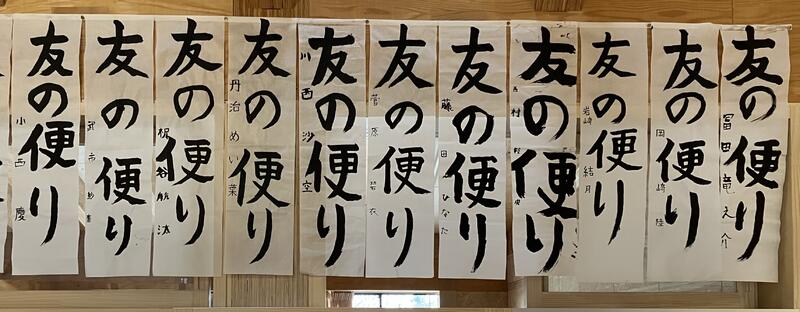 友の便り
小西 慶
友の便り
武市
友の便り
梶谷航汰
友の便り
丹治めい葉
友の便り
川西沙空
友の便り
菅原 衣
友の便り
藤田ひなた
友の便り
西村
友の便り
岩崎結月
友の便り
岡崎 陸
友の便り
冨田竜之介